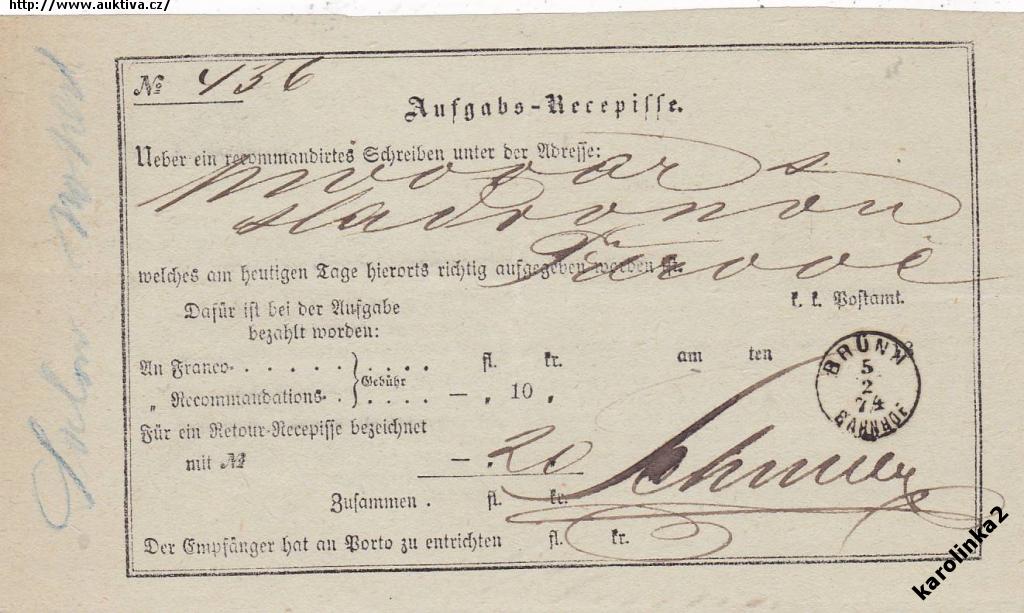 http://www.auktiva.cz/
№ 456
Aufgabs-Recepisse.
Ueber ein recommandirtes Schreiben unter der Adresse:
welches am heutigen Tage hierorts richtig aufgegeben worden ist.
k. k. Postamt.
Dafür ist bei der Aufgabe
bezahlt worden:
am ten
An Franco. . . . . . . . . . . fl. kr.
Gebühr
„ Recommandations. . . . . . — „ 10 „
BRÜNN
5
2
74
BAHNHOF
Für ein Retour-Recepisse bezeichnet
mit № — . 20
Zusammen . fl. kr.
Der Empfänger hat an Porto zu entrichten fl. kr.
karolinka2